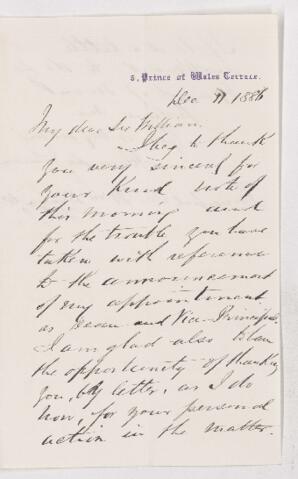 5, Prince of Wales Terrace.
Dec 11 1886
My dear Sir William
I beg to thank
you very sincerely for
your kind note of
this morning and
for the trouble you have
taken with reference
to the announcement
of my appointment
as Dean and Vice-Principal.
I am glad also to have
the opportunity of thanking
you, by letter, as I do
now, for your personal
action in the matter.